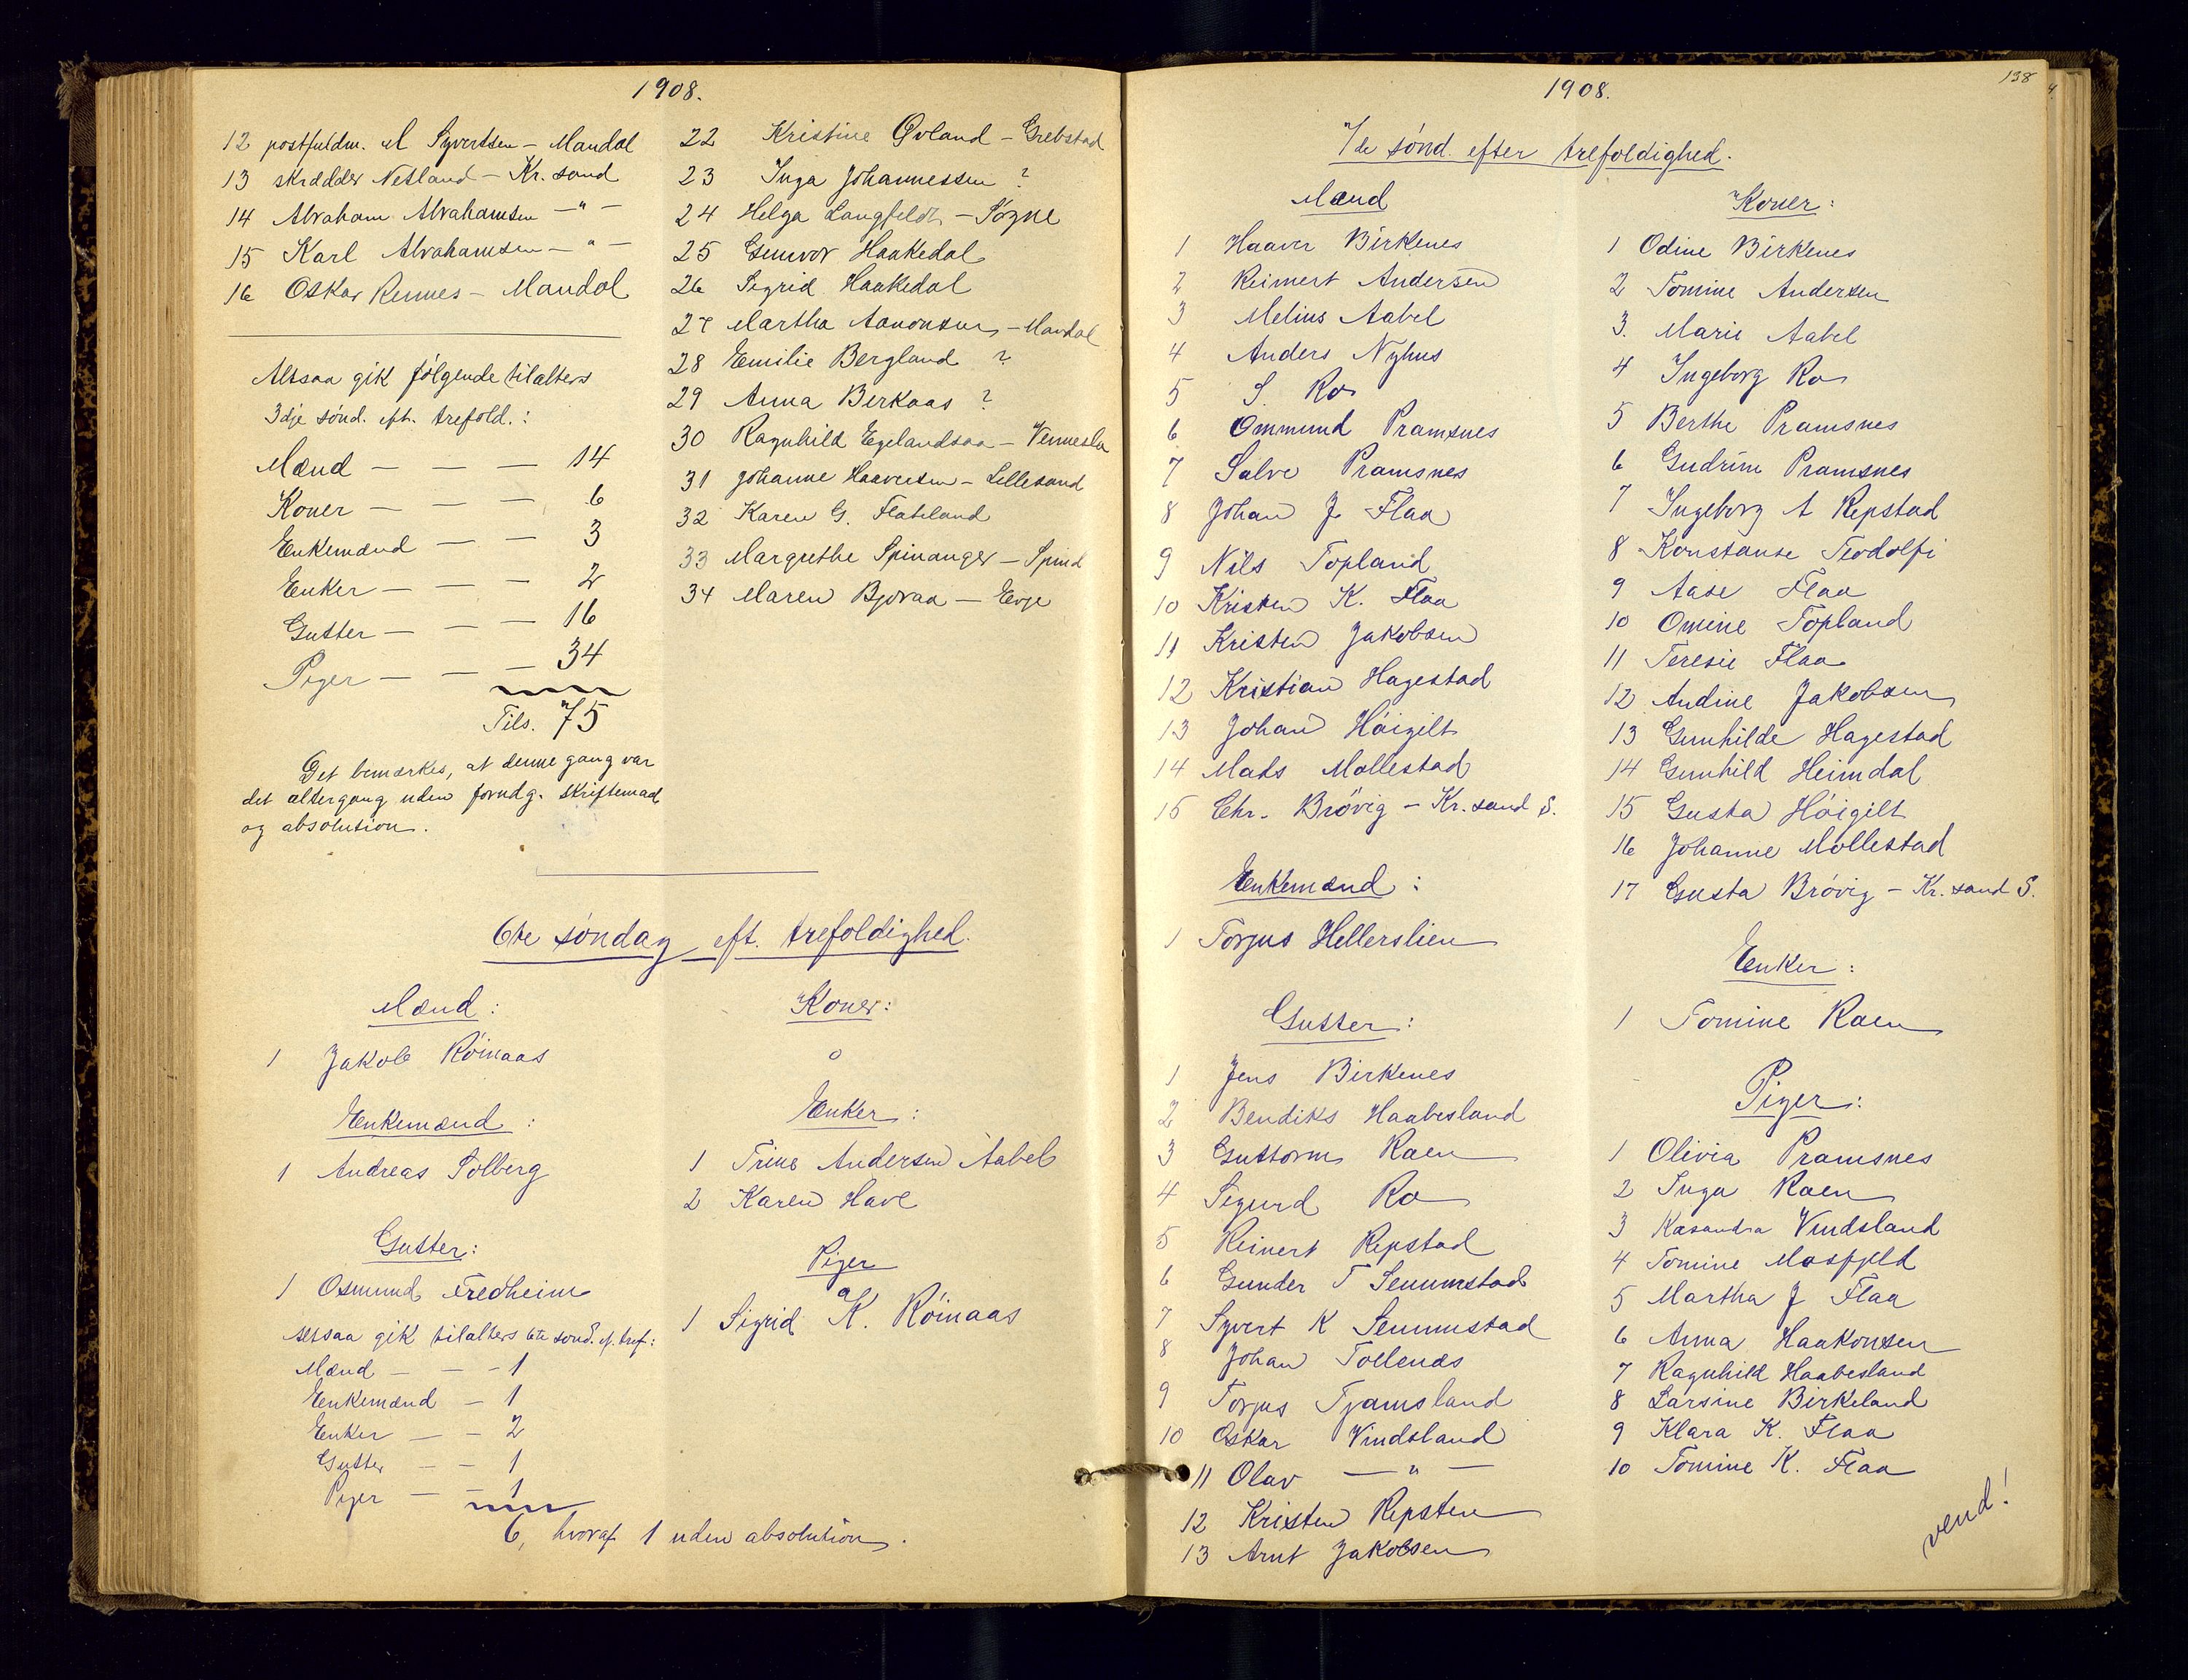 1908.
12 postfuldm. M Syvertsen - Mandal
13 skrædder Netland - Kr. sand
14 Abraham Abrahamsen - " -
15 Karl Abrahamsen - " -
16 Oskar Rennes - Mandal
Altsaa gik følgende tilalters
3dje sønd. eft. trefold.:
Mænd - - - 14
Koner - - - 6
Enkemænd - - 3
Enker - - - 2
Gutter - - - 16
Piger - - - 34
Tils. 75
Det bemærkes, at denne gang var
det altergang uden forudg. skriftemaal
og absolution.
22 Kristine Øvland - Grebstad
23 Inga Johannessen ?
24 Helga Langfeldt - Søgne
25 Gunvor Haakedal
26 Sigrid Haakedal
27 Martha Aanonsen - Mandal
28 Emilie Bergland ?
29 Anna Birkaas ?
30 Ragnhild Egelandsaa - Vennesla
31 Johanne Haaversen - Lillesand
32 Karen G. Flateland
33 Margrethe Spinanger - Spind
34 Maren Bjoraa - Evje
6te søndag eft. trefoldighed.
Mænd:
1 Jakob Røinaas
Enkemænd:
1 Andreas Solberg
Gutter:
1 Osmund Fredheim
Altsaa gik tilalters 6te sønd. ef. tref.:
Mænd - - - 1
Enkemænd - 1
Enker - - 2
Gutter - - 1
Piger - - 1
6, hvoraf 1 uden absolution.
Koner:
0
Enker:
1 Trine Andersen Aabel
2 Karen Have
Piger
1 Sigrid K. Røinaas
138
1908.
7de sønd. efter trefoldighed.
Mænd
1 Haaver Birkenes
2 Reimert Andersen
3 Melius Aabel
4 Anders Nyhus
5 S. Ro
6 Ommund Pramsnes
7 Salve Pramsnes
8 Johan J Flaa
9 Nils Topland
10 Kristen K. Flaa
11 Kristen Jakobsen
12 Kristian Hagestad
13 Johan Høigilt
14 Mads Mollestad
15 Chr. Brøvig - Kr. sand S.
Enkemænd:
1 Torjus Hellerslien
Gutter:
1 Jens Birkenes
2 Bendiks Haabesland
3 Guttorm Raen
4 Sigurd Ro
5 Reinert Repstad
6 Gunder T Senumstad
7 Syvert K Senumstad
8 Johan Tollenes
9 Torjus Tjamsland
10 Oskar Vindsland
11 Olav - " -
12 Kristen Repsten
13 Arnt Jakobsen
Koner:
1 Odine Birkenes
2 Tomine Andersen
3. Marie Aabel
4 Ingeborg Ro
5 Berthe Pramsnes
6 Gudrine Pramsnes
7 Ingeborg A Repstad
8 Konstanse Teodolfi
9 Aase Flaa
10 Omine Topland
11 Teresie Flaa
12 Andine Jakobsen
13 Gunhilde Hagestad
14 Gunhild Heimdal
15 Gusta Høigilt
16 Johanne Mollestad
17 Gusta Brøvig - Kr. sand S.
Enker:
1 Tomine Raen
Piger:
1 Olivia Pramsnes
2 Inga Raen
3 Kasandra Vindsland
4 Tomine Mosfjeld
5 Martha J Flaa
6 Anna Haakonsen
7 Ragnhild Haabesland
8 Larsine Birkeland
9 Klara K. Flaa
10 Tomine K. Flaa
vend!